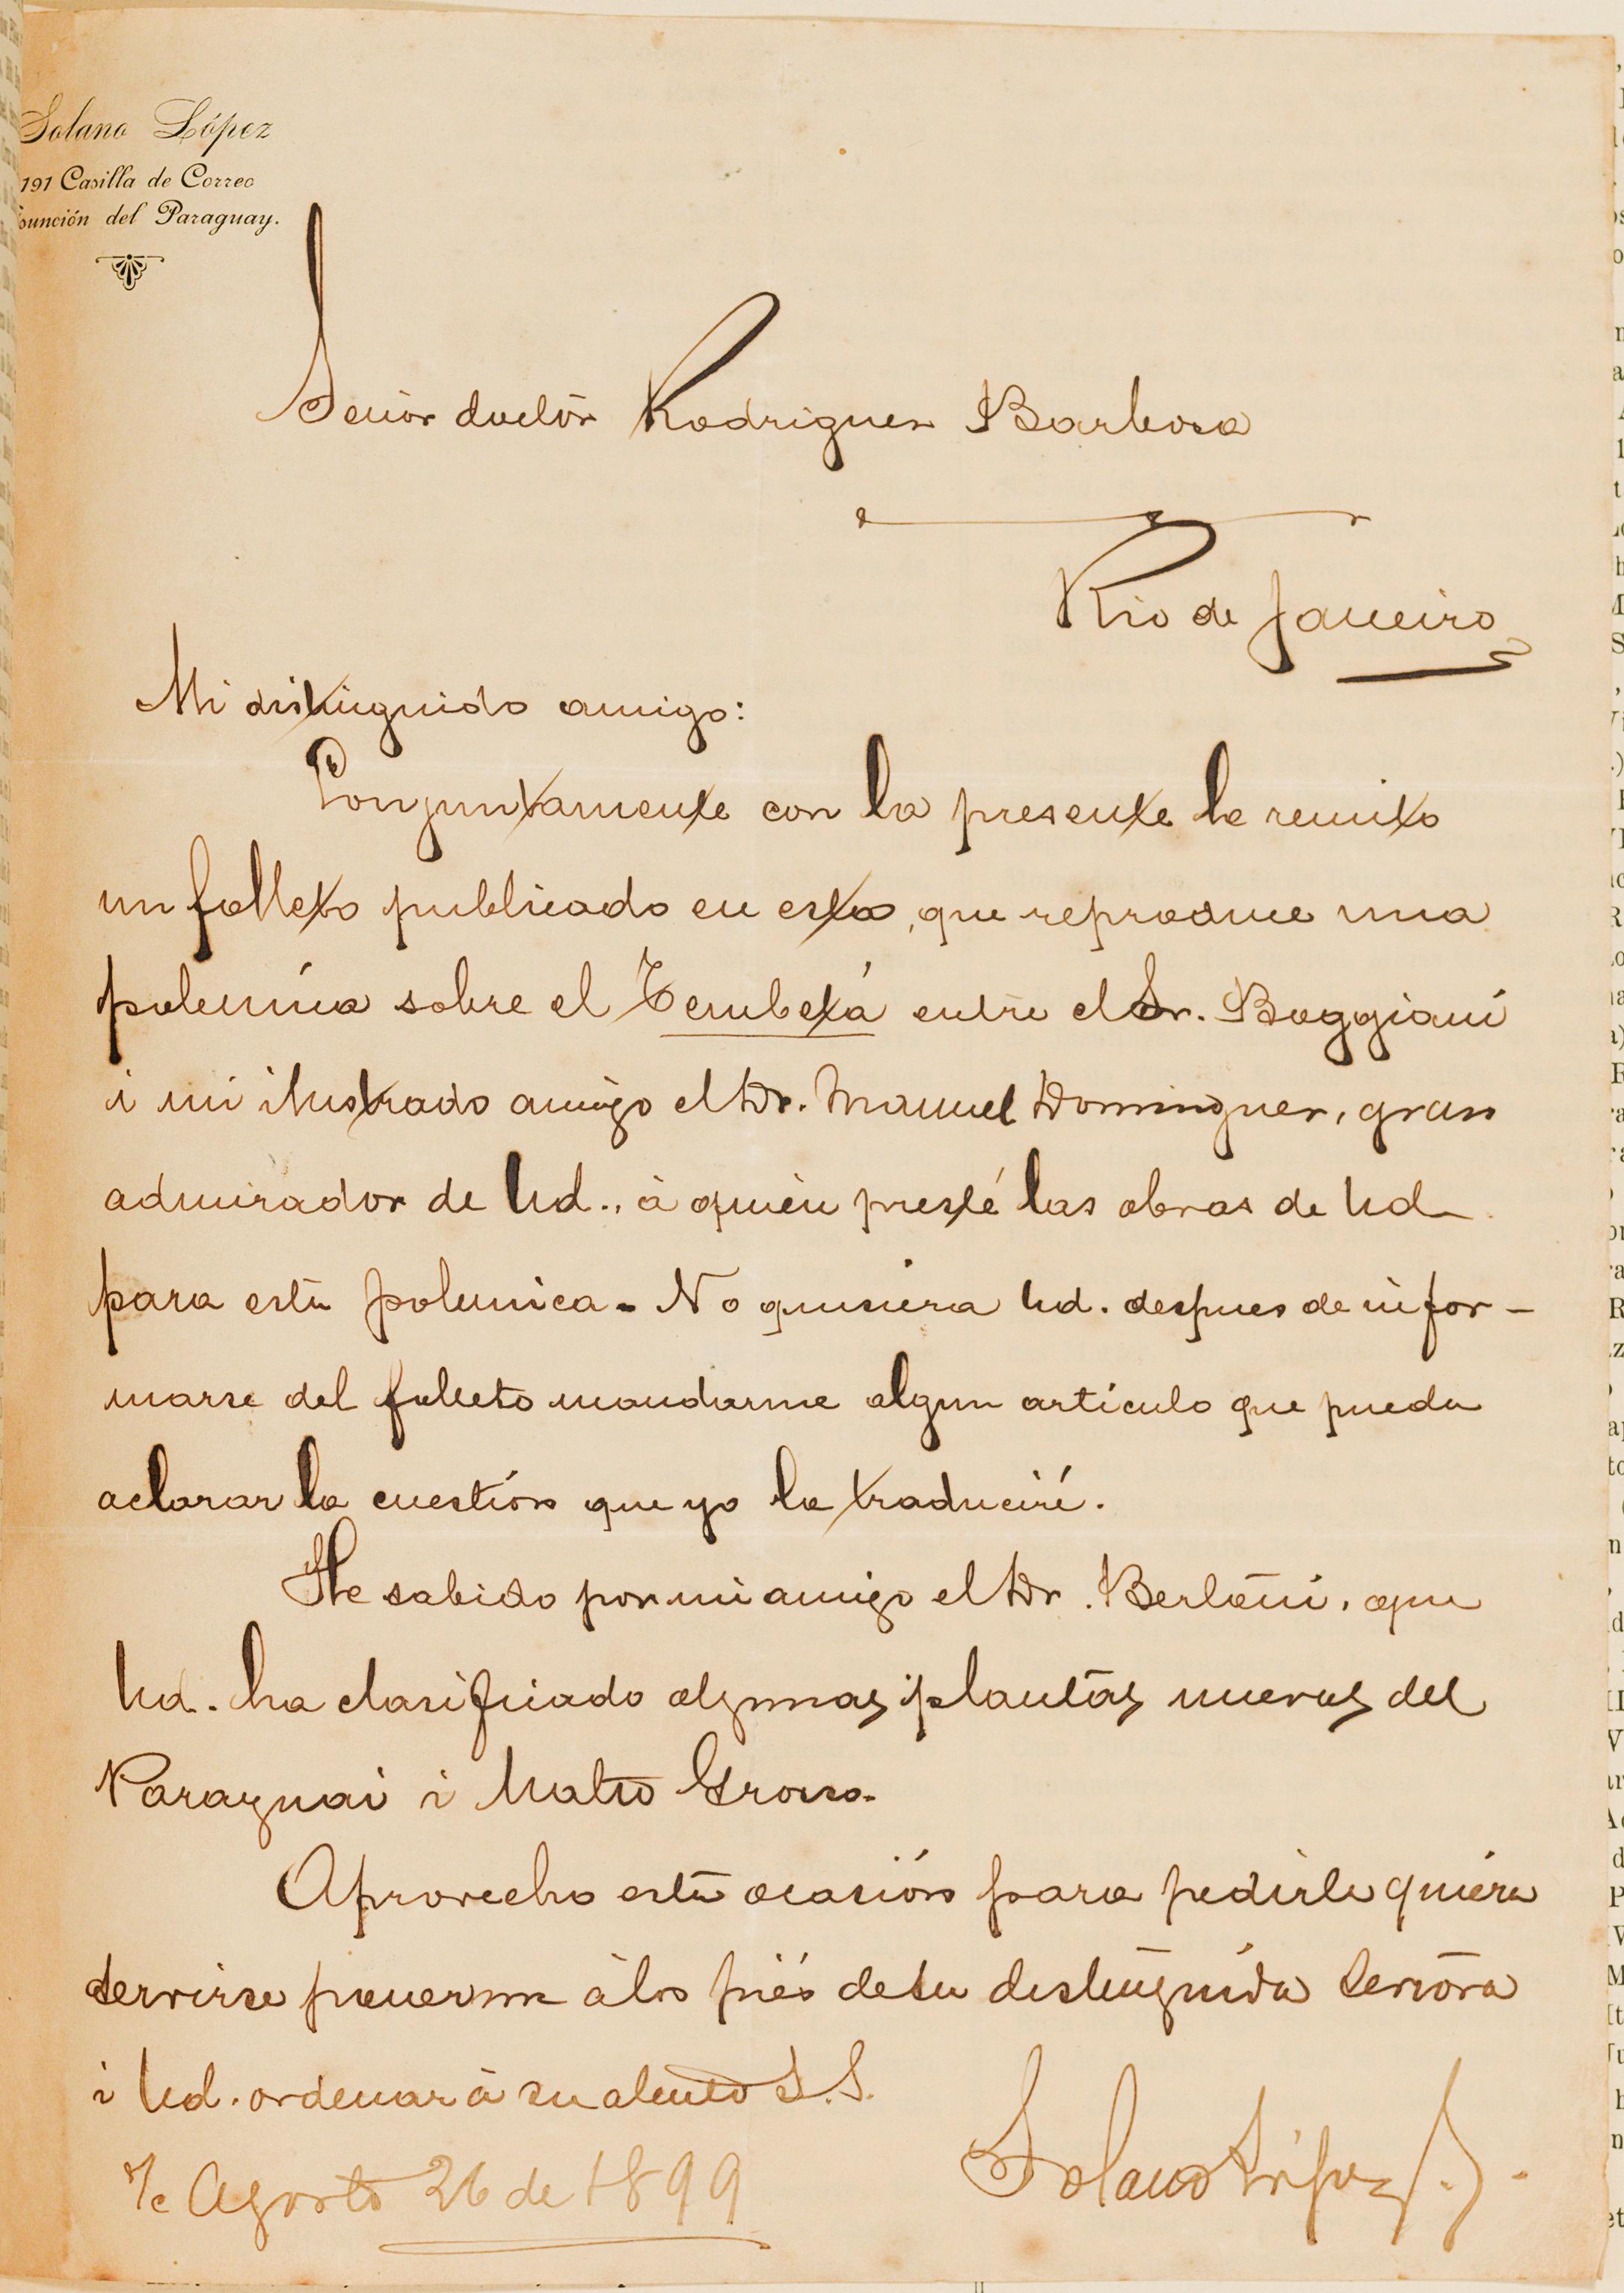 Solano López
191 Casilla de Correo
sunción del Paraguay.
Señor doctor Rodriguez Barbosa
Rio de Janeiro
Mi distinguido amigo:
Conjuntamente con la presente le remito
un folleto publicado en esta, que reproduce una
polemica sobre el Tembetá entre el Sr. Boggiani
i mi ilustrado amigo el Dr. Manuel Dominguez, gran
admirador de Ud., á quien presté las obras de Ud
para esta polemica. No quisiera Ud. despues de infor-
marse del folleto mandarme algun articulo que pueda
aclarar la cuestión que yo la traduciré.
He sabido por mi amigo el Dr. Bertoni, que
Ud. ha clasificado algunas plantas nuevas del
Paraguai i Matto Grosso.
Aprovecho esta ocasión para pedirle quiera
servirse ponerme á los piés de su distinguida Señora
i Ud. ordenar á su atento S.S.
Solano López
S/c Agosto 26 de 1899